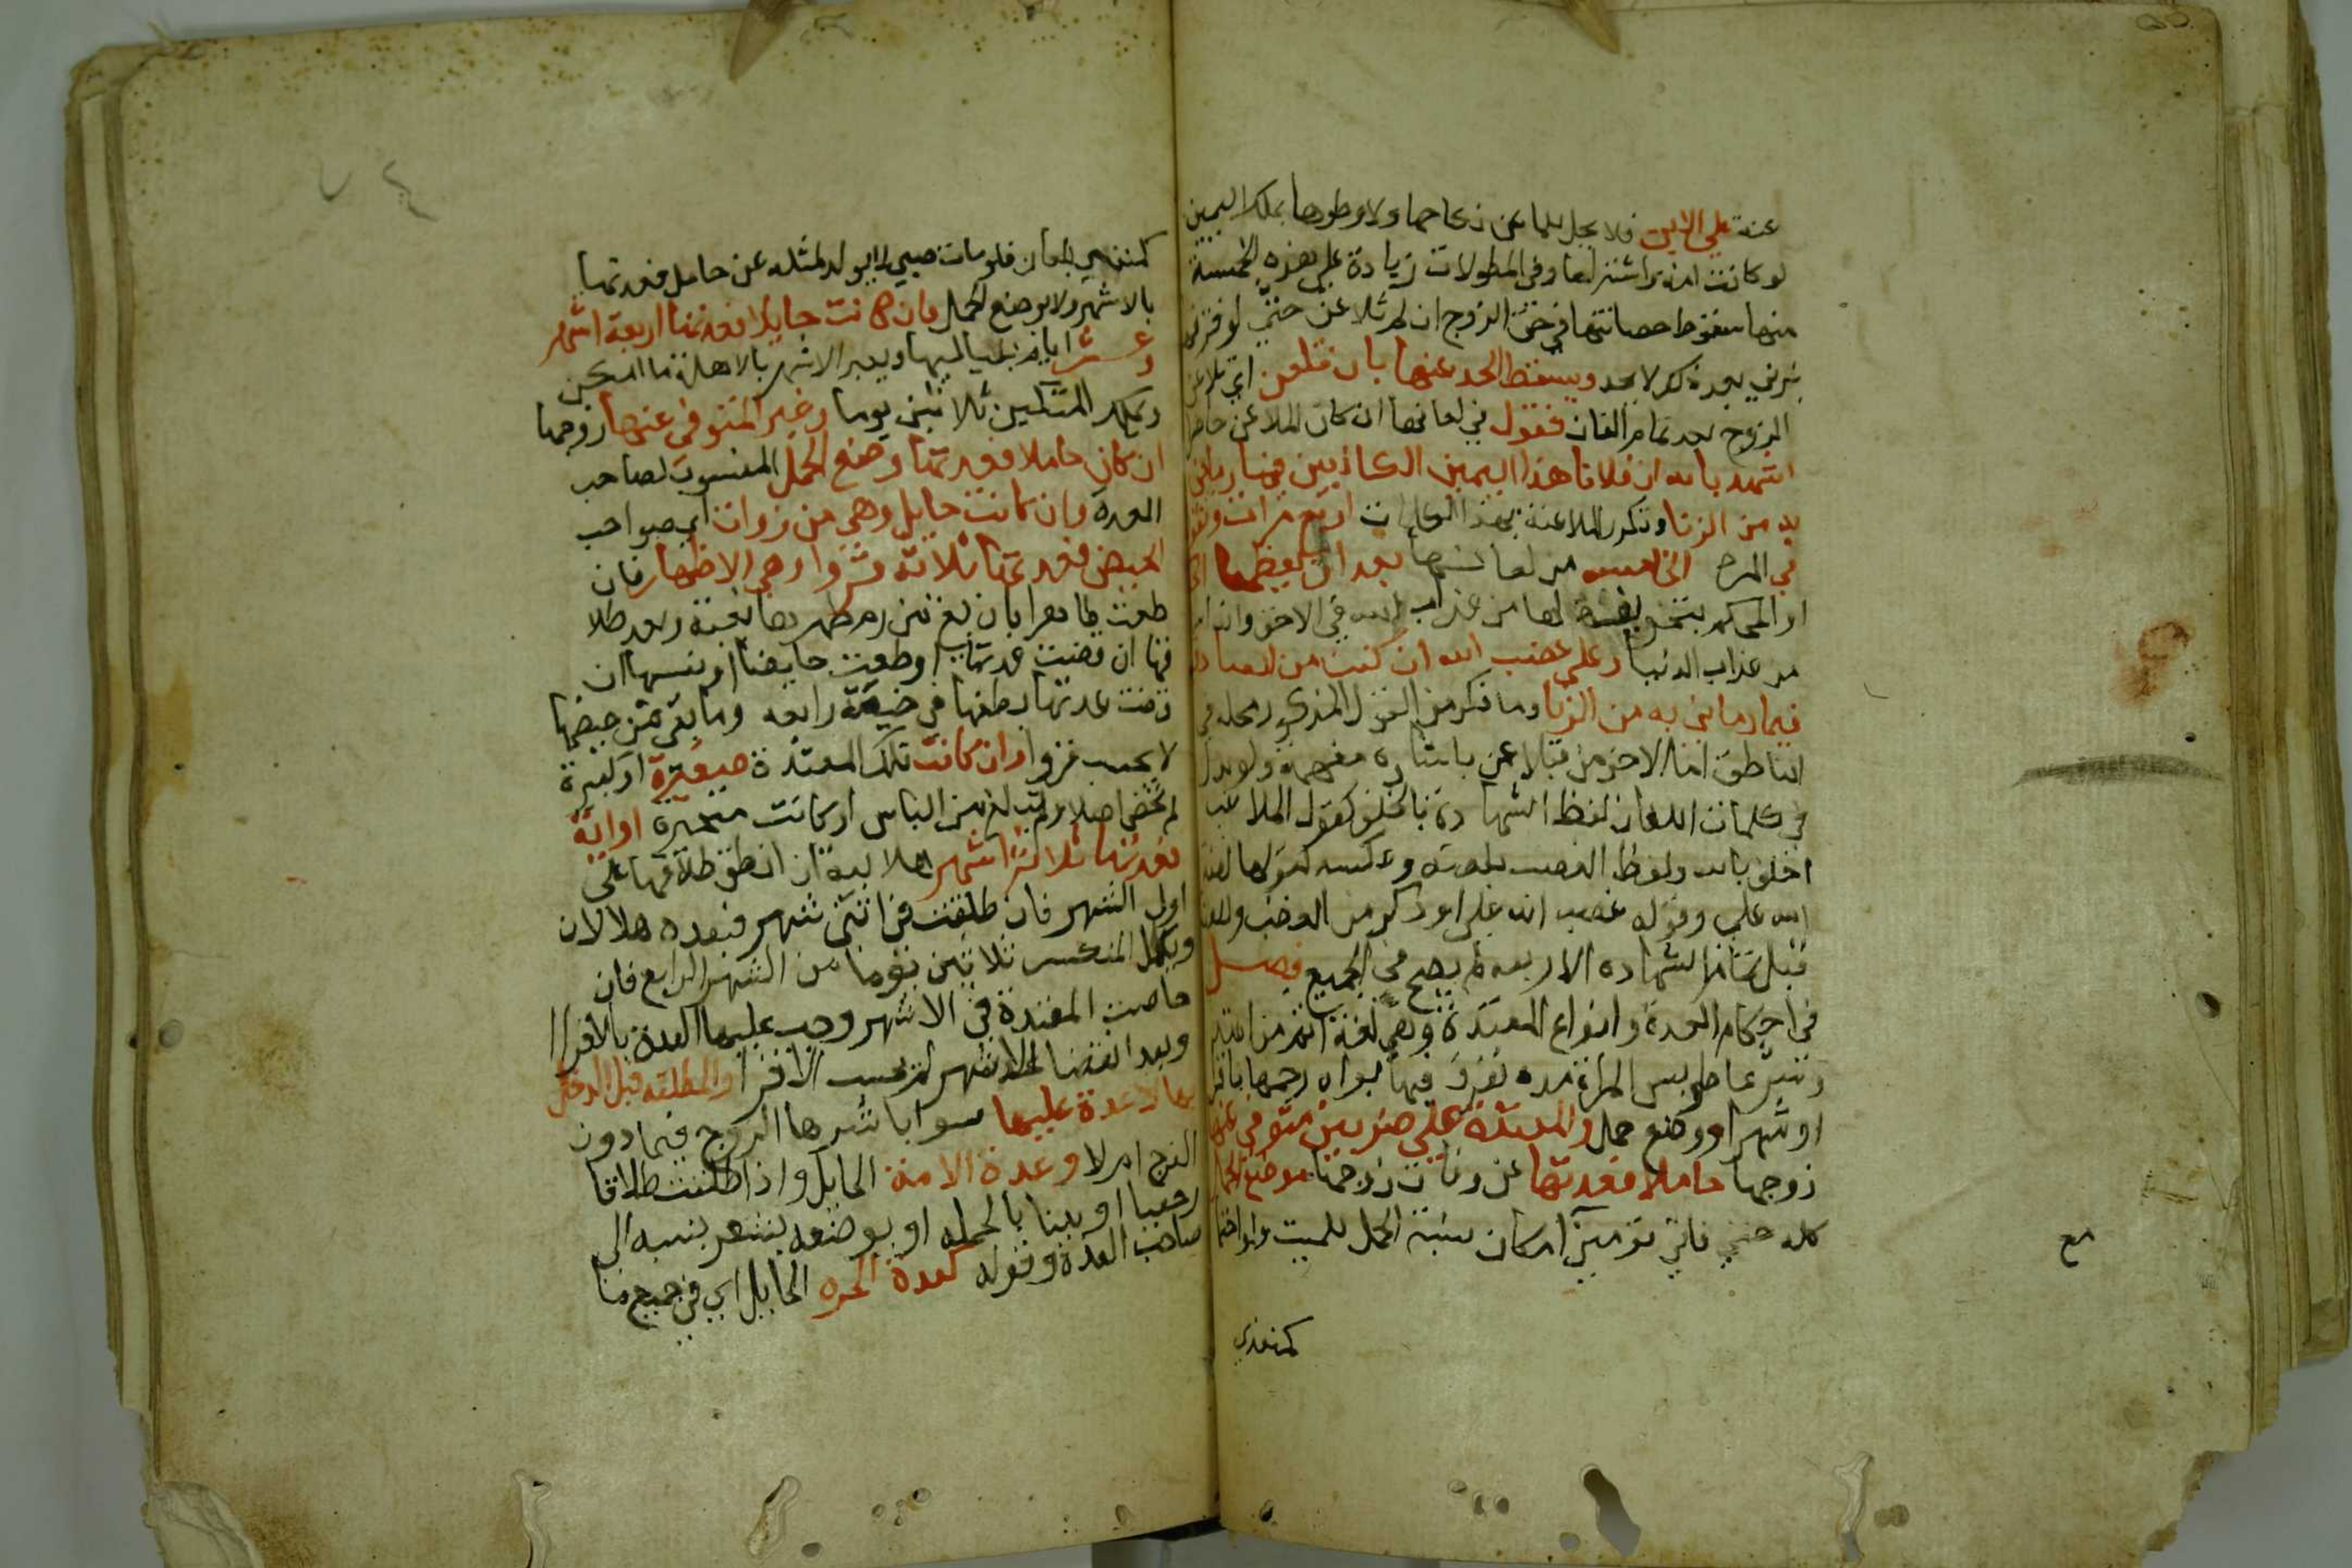 عنة على الابد فلا يحل للملاعن نكاحها ولا وطوها بملك اليمين
لو كانت امة واشتراها وفي المطولات زيادة على هذه الخمسة
منها سقوط حصانتها في حق الزوج ان لم تلاعن حتى لو قذفها
بزنى بعد ذلك لا يحد ويسقط الحد عنها بان تلعن اي تلاعن
الزوج بعد تمام لعانه فتقول في لعانها ان كان الملاعن حاضرا
اشهد بالله ان فلانا هذا لمن الكاذبين فيما رماني
به من الزنا وتكرر الملاعنة هذا الكلمات اربع مرات وتقول
في المره الخامسه من لعانها بعد ان يعظها
او المحكم بتخويفه لها من عذاب الله في الاخرة وانه
من عذاب الدنيا وعلي غضب الله ان كنت من الصاد
فيما رماني به من الزنا وما ذكر من القول المذكور محله في
الناطق اما الاخرس فيلاعن باشارة مفهمة ولو بدل
في كلمات اللعان لفظ الشهادة بالحلف كقول الملاعن
احلف بالله ولفظ الغضب بلعنه وعكسه كقولها لعنة
الله علي وقوله غضب الله علي او ذكر من الغضب واللعن
قبل تمام الشهاده الاربعه لم يصح في الجميع فصل
في احكام العدة وانواع المعتدة وهي لغة اسم من اعتد
وشرعا تربص المراة مدة تعرف فيها براه رحمها باقرا
او شهر او وضع حمل والمعتدة على ضربين متوفى عنها
زوجها حاملا فعدتها عن وفات زوجها بوضع الحمل
كله حتى ثاني توميين امكان نسبة الحمل للميت ولو احتما
كمنفي
مع
كمنفي بلعان فلو مات صبي لا يولد لمثله عن حامل فعدتها
بالاشهر لا بوضع الحمل وان كانت حايلا فعدتها اربعة اشهر
وعشر ايام بلياليها ويعتبر الاشهر بالاهلة ما امكن
ويكمل المنكسر ثلاثين يوما وغير المتوفى عنها زوجها
ان كان حاملا فعدتها وضع الحمل المنسوب لصاحب
العدة وان كانت حايل وهي من ذوات اي صواحب
الحيض فعدتها ثلاثة قروا وهي الاطهار فان
طلقت طاهرا بان بقي من زمن طهرها بقية بعد طلا
قها انقضت عدتها او طلقت حايضا او نفسا ان
قضت عدتها بطعنها في حيضة رابعه وما بقي من حيضها
لا يحسب قروا وان كانت تلك المعتدة صغيرة او كبيرة
لم تحض اصلا ولم تبلغ سن الياس او كانت متحيرة او ايّة
فعدتها ثلاثة اشهر هلالية ان انطبق طلاقها على
اول الشهر فان طلقت في اثني شهر فبعده هلالان
ويكمل المنكسر ثلاثين يوما من الشهر الرابع فان
حاضت المعتدة في الاشهر وجب عليها العدة بالاقرا
وبعد انقضا الاشهر لم يحسب الاقرا والمطلقه قبل الدخل
بها لا عدة عليها سوا باشرها الزوج فيما دون
الفرج ام لا وعدة الامة الحايل واذا طلقت طلاقا
رجعيا او بينا بالحمل او بوضعه بشرط نسبه الى
صاحب العدة وقوله كعدة الحره الحايل اي في جميع ما